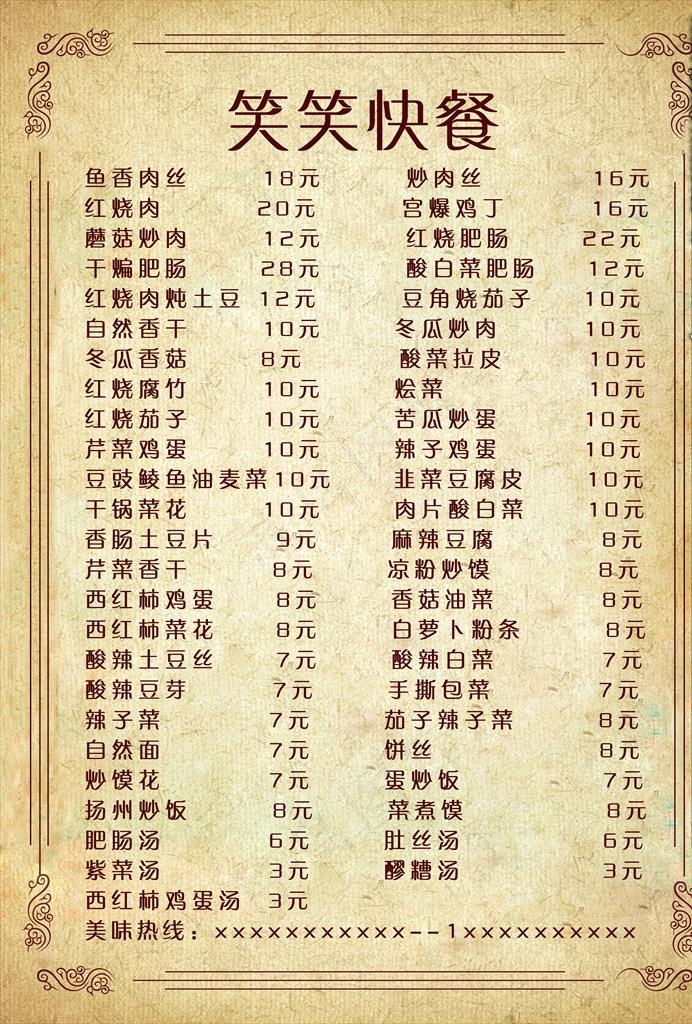 笑笑快餐
鱼香肉丝 18元 炒肉丝 16元
红烧肉 20元 宫爆鸡丁 16元
蘑菇炒肉 12元 红烧肥肠 22元
干煸肥肠 28元 酸白菜肥肠 12元
红烧肉炖土豆 12元 豆角烧茄子 10元
自然香干 10元 冬瓜炒肉 10元
冬瓜香菇 8元 酸菜拉皮 10元
红烧腐竹 10元 烩菜 10元
红烧茄子 10元 苦瓜炒蛋 10元
芹菜鸡蛋 10元 辣子鸡蛋 10元
豆豉鲮鱼油麦菜 10元 韭菜豆腐皮 10元
干锅菜花 10元 肉片酸白菜 10元
香肠土豆片 9元 麻辣豆腐 8元
芹菜香干 8元 凉粉炒馍 8元
西红柿鸡蛋 8元 香菇油菜 8元
西红柿菜花 8元 白萝卜粉条 8元
酸辣土豆丝 7元 酸辣白菜 7元
酸辣豆芽 7元 手撕包菜 7元
辣子菜 7元 茄子辣子菜 8元
自然面 7元 饼丝 8元
炒馍花 7元 蛋炒饭 7元
扬州炒饭 8元 菜煮馍 8元
肥肠汤 6元 肚丝汤 6元
紫菜汤 3元 醪糟汤 3元
西红柿鸡蛋汤 3元
美味热线：xxxxxxxxxxx--1xxxxxxxxxx